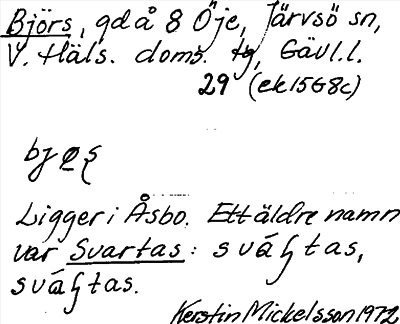 Björs, gd å 8 Öje, Järvsö sn,
V. Häls. doms. tg, Gävl.l.
29 (ek15G8c)
Ligger i Åsbo. Ett äldre namn
var Svartas: sváʃtas,
sváʃtas.
Kerstin Mickelsson 1972